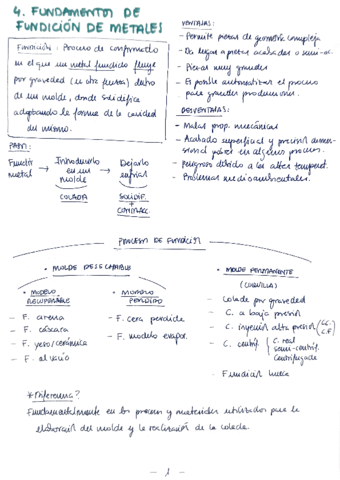 4. FUNDAMENTOS DE
FUNDICIÓN DE METALES
FUNDICIÓN: Proceso de conformado
en el que un metal fundido fluye
por gravedad (u otra fuerza) dentro
de un molde, donde solidifica
adoptando la forma de la cavidad
del mismo.
VENTAJAS:
- Permite piezas de geometría compleja
- Da lugar a piezas acabadas o semi-ac.
- Piezas muy grandes
- Es posible automatizar el proceso
para grandes producciones.
DESVENTAJAS:
- Malas prop. mecánicas
- Acabado superficial y precisión dimen-
sional pobre en algunos procesos.
- Peligroso debido a las altas temperat.
- Problemas medioambientales.
PASOS:
Fundir metal → Introducirlo en un molde → Dejarlo enfriar
COLADA
SOLIDIF.
+
CONTRACC.
PROCESOS DE FUNDICIÓN
• MOLDE DESECHABLE
• MOLDE PERMANENTE
(COQUILLA)
• MODELO
REUTILIZABLE
- F. arena
- F. cáscara
- F. yeso/cerámica
- F. al vacío
• MODELO
PERDIDO
- F. cera perdida
- F. modelo evapor.
- Colada por gravedad
- C. a baja presión
- C. inyección alta presión (C.C. C.F.)
- C. centríf. { C. real
semi-centríf.
Centrifugada
- Fundición hueca
* Diferencia?
Fundamentalmente en los procesos y materiales utilizados para la
elaboración del molde y la realización de la colada.
- 1 -